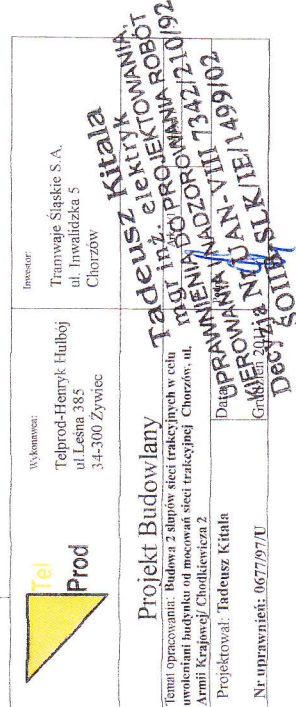 Tel
Prod
Wykonawca:
Telprod-Henryk Hulbój
ul.Leśna 385
34-300 Żywiec
Inwestor:
Tramwaje Śląskie S.A.
ul. Inwalidzka 5
Chorzów
Projekt Budowlany
Temat opracowania: Budowa 2 słupów sieci trakcyjnych w celu
uwolnieniani budynku od mocowań sieci trakcyjnej Chorzów, ul.
Armii Krajowej/ Chodkiewicza 2
Projektował: Tadeusz Kitala
Data
Grudzień
Nr uprawnień: 0677/97/U
Tadeusz Kitala
mgr inż. elektryk
UPRAWNIENIA DO PROJEKTOWANIA,
KIEROWANIA I NADZOROWANIA ROBÓT
Nr UAN-VIII 7342/210/92
Decyzja SLK/IE/1499/02